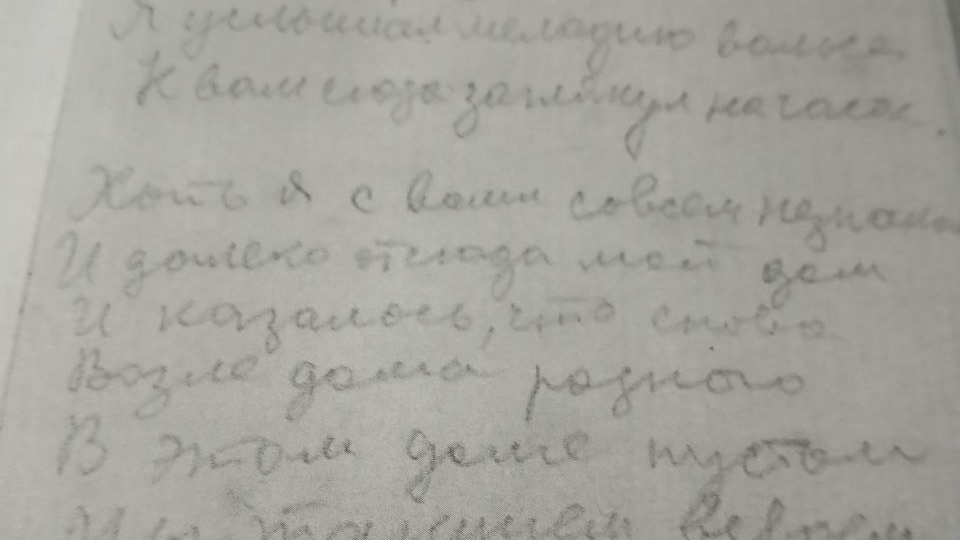 Я услышал мелодию вальса
К вам сюда заглянул на часок.
Хоть я с вами совсем незнаком
И далеко отсюда мой дом
И казалось, что снова
Возле дома родного
В этом доме пустом